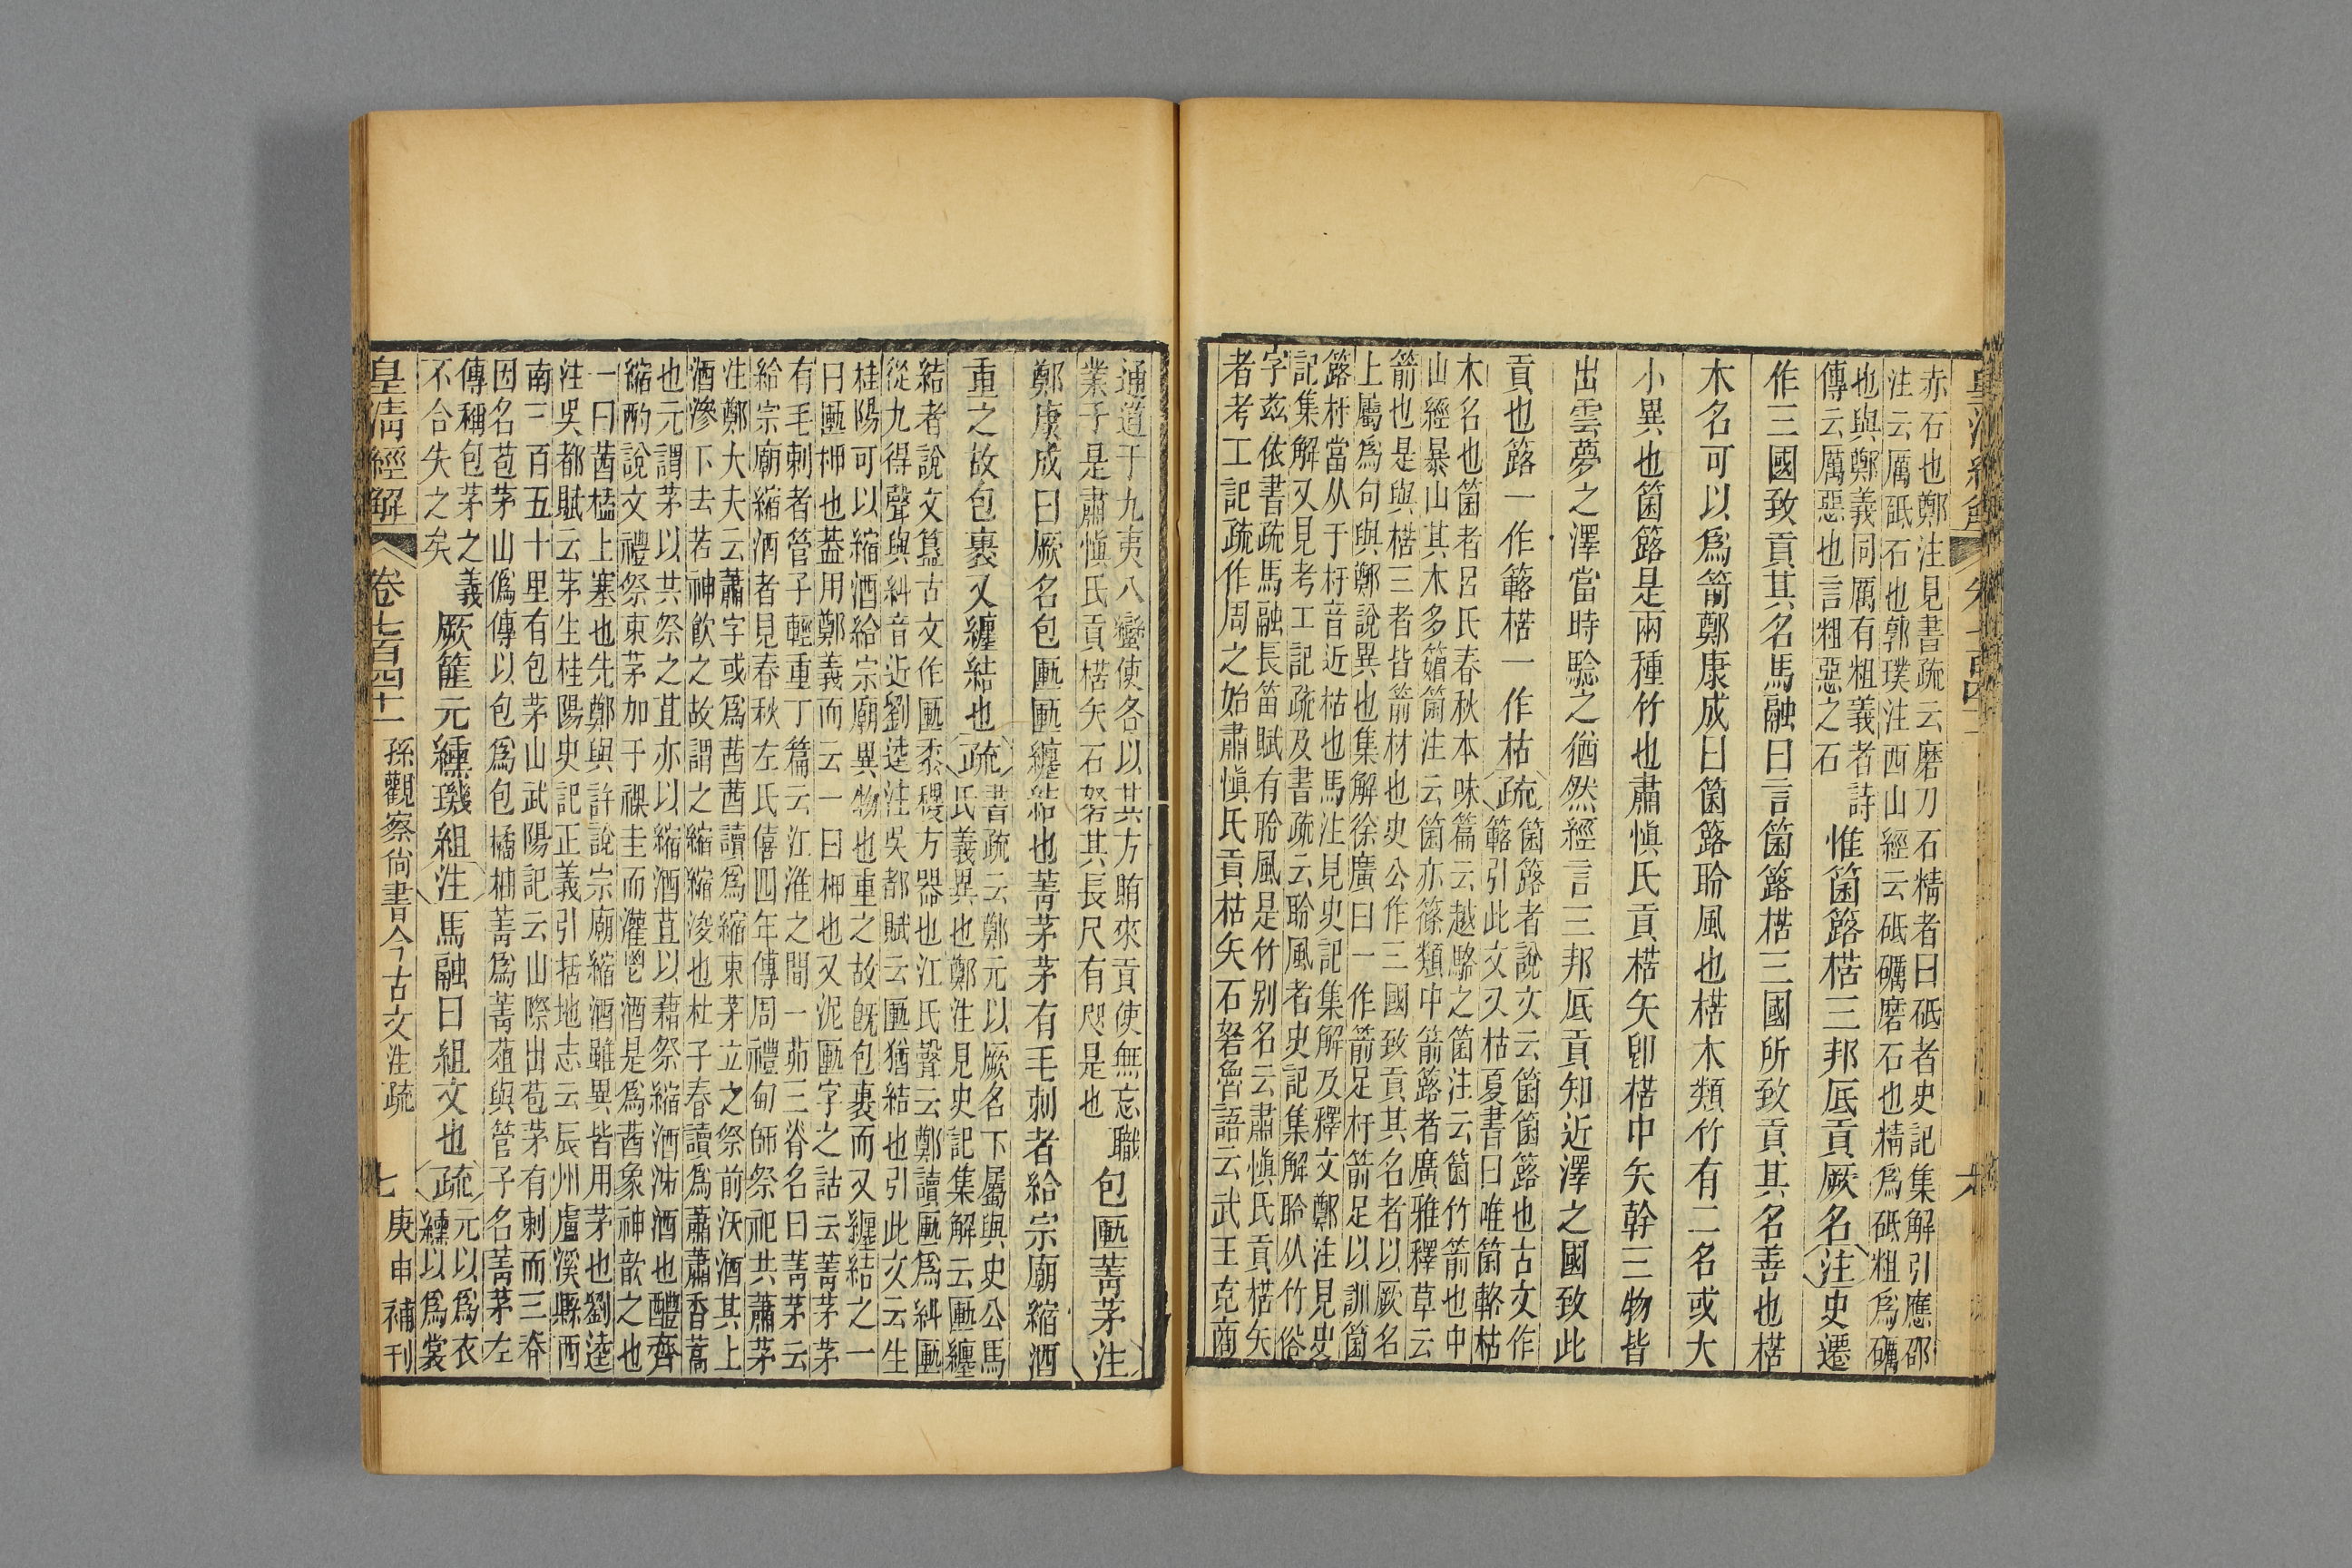 赤石也鄭注見書疏云磨刀石精者曰砥者史記集解引應邵
注云厲砥石也郭璞注西山經云砥礪磨石也精爲砥粗爲礪
也與鄭義同厲有粗義者詩
傳云厲惡也言粗惡之石
惟箘簵楛三邦厎貢厥名注史遷
作三國致貢其名馬融曰言箘簵楛三國所致貢其名善也楛
木名可以爲箭鄭康成曰箘簵聆風也楛木類竹有二名或大
小異也箘簵是兩種竹也肅愼氏貢楛矢卽楛中矢幹三物皆
出雲夢之澤當時驗之猶然經言三邦厎貢知近澤之國致此
貢也簵一作簬楛一作枯疏
箘簵者說文云箘箘簵也古文作
簬引此文又枯夏書曰唯箘輅枯
木名也箘者呂氏春秋本味篇云越駱之箘注云箘竹箭也中
山經暴山其木多箘注云箘亦篠類中箭簵者廣雅釋草云
箭也是與楛三者皆箭材也史公作三國致貢其名者以厥名
上屬爲句與鄭說異也集解徐廣曰一作箭足杆箭足以訓箘
簵杆當从于杆音近枯也馬注見史記集解及釋文鄭注見史
記集解又見考工記疏及書疏云聆風者史記集解聆从竹俗
字茲依書疏馬融長笛賦有聆風是竹别名云肅愼氏貢楛矢
者考工記疏作周之始肅愼氏貢枯矢石砮魯語云武王克商
通道于九夷八蠻使各以其方賄來貢使無忘職
業于是肅愼氏貢楛矢石砮其長尺有咫是也
包匭菁茅注
鄭康成曰厥名包匭匭纏結也菁茅茅有毛刺者給宗廟縮酒
重之故包裹又纏結也疏
書疏云鄭元以厥名下屬與史公馬
氏義異也鄭注見史記集解云匭纏
結者說文簋古文作匭黍稷方器也江氏聲云鄭讀匭爲糾匭
從九得聲與糾音近劉逵注吳都賦云匭猶結也引此文云生
桂陽可以縮酒給宗廟異物也重之故旣包裹而又纏結之一
曰匭柙也葢用鄭義而云一曰柙也又泥匭字之詁云菁茅茅
有毛刺者管子輕重丁篇云江淮之間一茆三脊名曰菁茅云
給宗廟縮酒者見春秋左氏僖四年傳周禮甸師祭祀共蕭茅
注鄭大夫云蕭字或爲茜茜讀爲縮束茅立之祭前沃酒其上
酒滲下去若神飮之故謂之縮縮浚也杜子春讀爲蕭蕭香蒿
也元謂茅以共祭之苴亦以縮酒苴以藉祭縮酒泲酒也醴齊
縮酌說文禮祭束茅加于祼圭而灌鬯酒是爲莤象神歆之也
一曰莤榼上塞也先鄭與許說宗廟縮酒雖異皆用茅也劉逵
注吳都賦云茅生桂陽史記正義引括地志云辰州盧溪縣西
南三百五十里有包茅山武陽記云山際出苞茅有刺而三脊
因名苞茅山僞傳以包爲包橘柚菁爲菁蒩與管子名菁茅左
傳稱包茅之義
不合失之矣
厥篚元纁璣組注馬融曰組文也疏
元以爲衣
纁以爲裳
皇淸經解
卷七百四十一
孫觀察尙書今古文注疏
七
庚申補刊